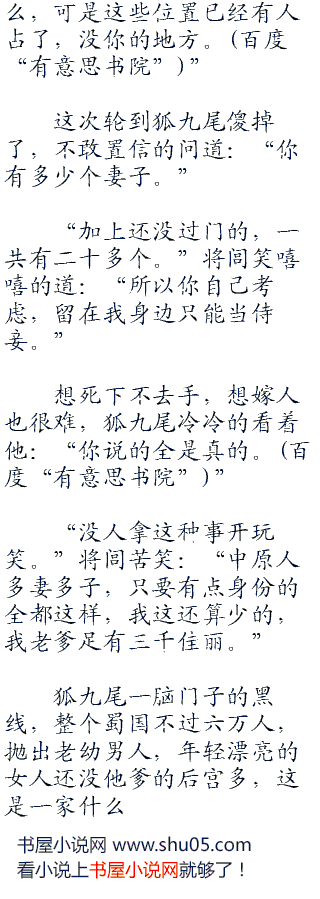 么，可是这些位置已经有人
占了，没你的地方。(百度
“有意思书院”)”
这次轮到狐九尾傻掉
了，不敢置信的问道：“你
有多少个妻子。”
“加上还没过门的，一
共有二十多个。”将闾笑嘻
嘻的道：“所以你自己考
虑，留在我身边只能当侍
妾。”
想死下不去手，想嫁人
也很难，狐九尾冷冷的看着
他：“你说的全是真的。(百
度“有意思书院”)”
“没人拿这种事开玩
笑。”将闾苦笑：“中原人
多妻多子，只要有点身份的
全都这样，我这还算少的，
我老爹足有三千住丽。”
狐九尾一脑门子的黑
线，整个蜀国不过六万人，
抛出老幼男人，年轻漂亮的
女人还没他爹的后宫多，这
是一家什么
书屋小说网 www.shu05.com
看小说上书屋小说网就够了！